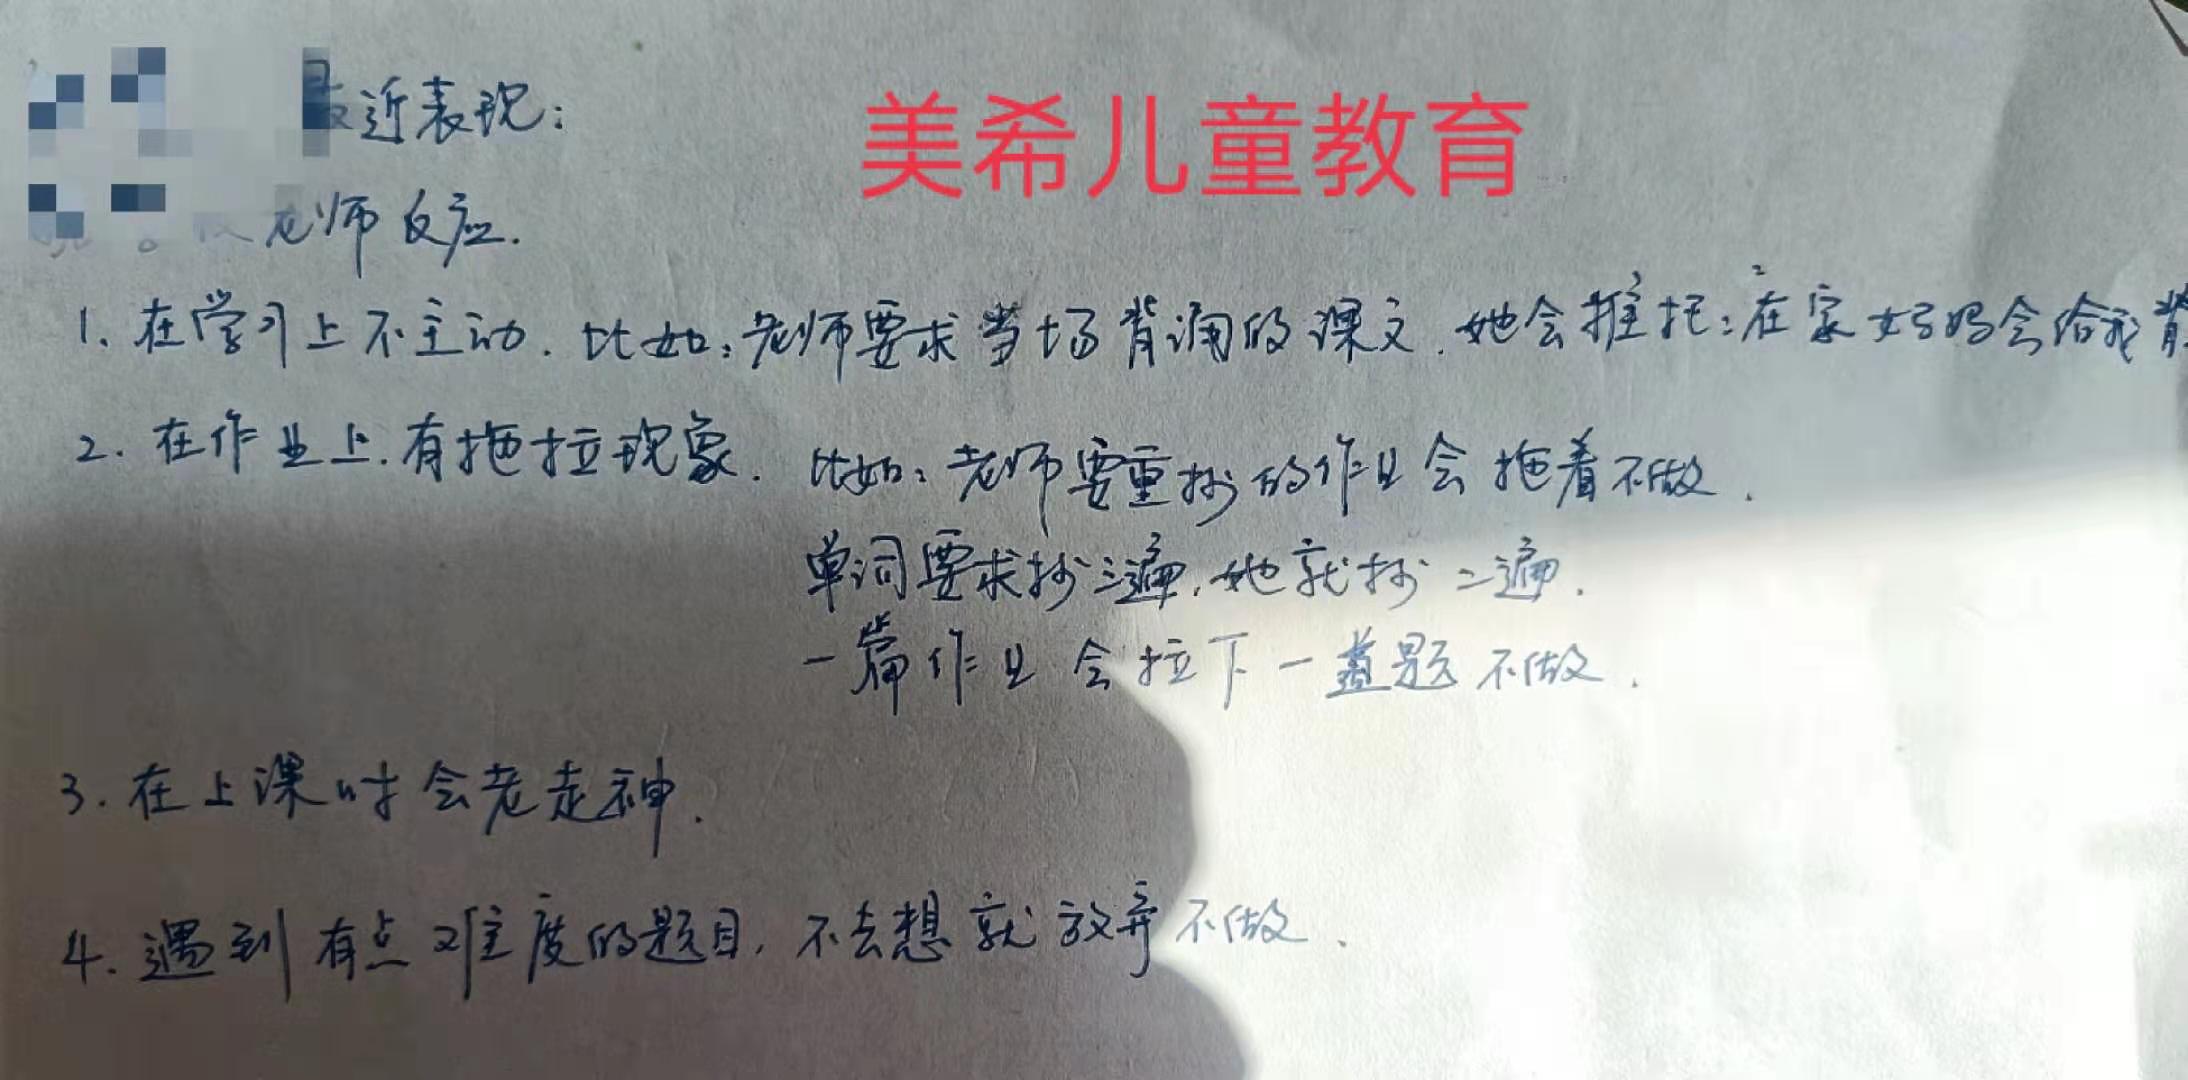 最近表现：
美希儿童教育
老师反应.
1. 在学习上不主动. 比如：老师要求当场背诵的课文. 她会推托：在家妈妈会给我背
2. 在作业上.有拖拉现象. 比如：老师要重抄的作业会拖着不做.
单词要求抄三遍，她就抄二遍.
一篇作业会拉下一道题不做.
3. 在上课时会老走神.
4. 遇到有点难度的题目，不去想就放弃不做.